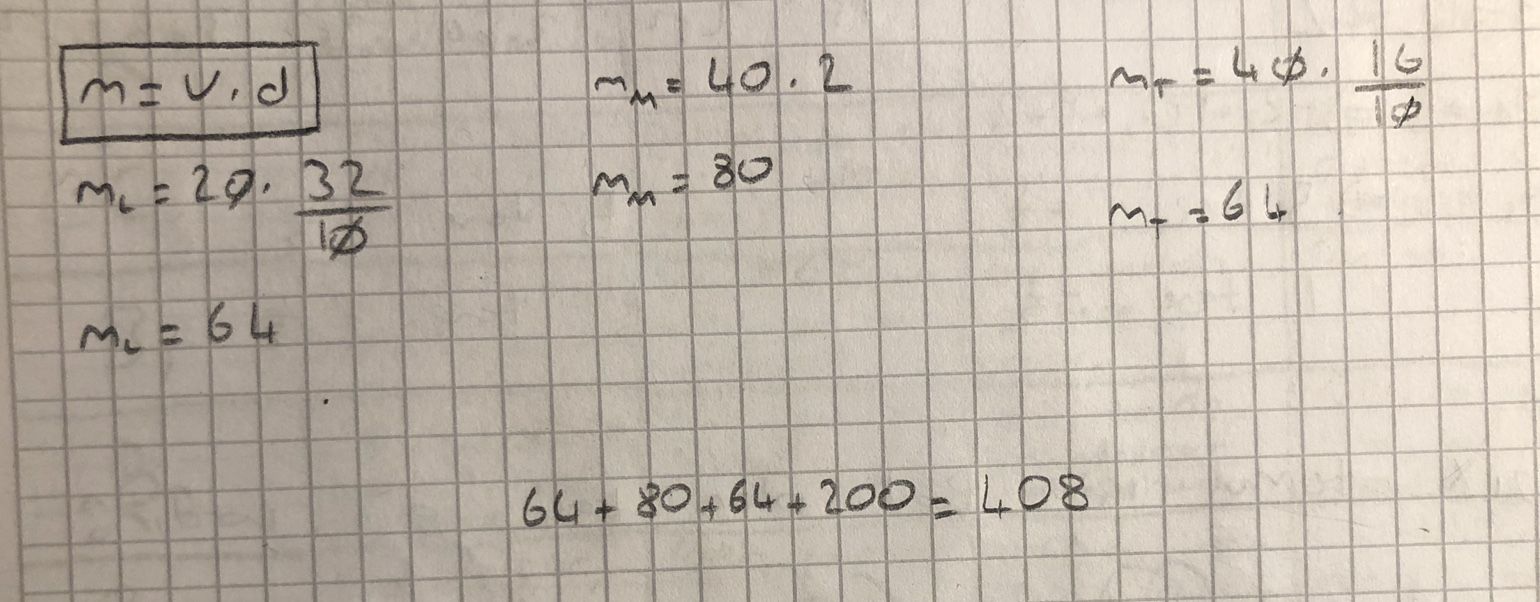 m = V . d
m_L = 20 . 32/10
m_L = 64
m_M = 40 . 2
m_M = 80
m_T = 40 . 16/10
m_T = 64
64 + 80 + 64 + 200 = 408